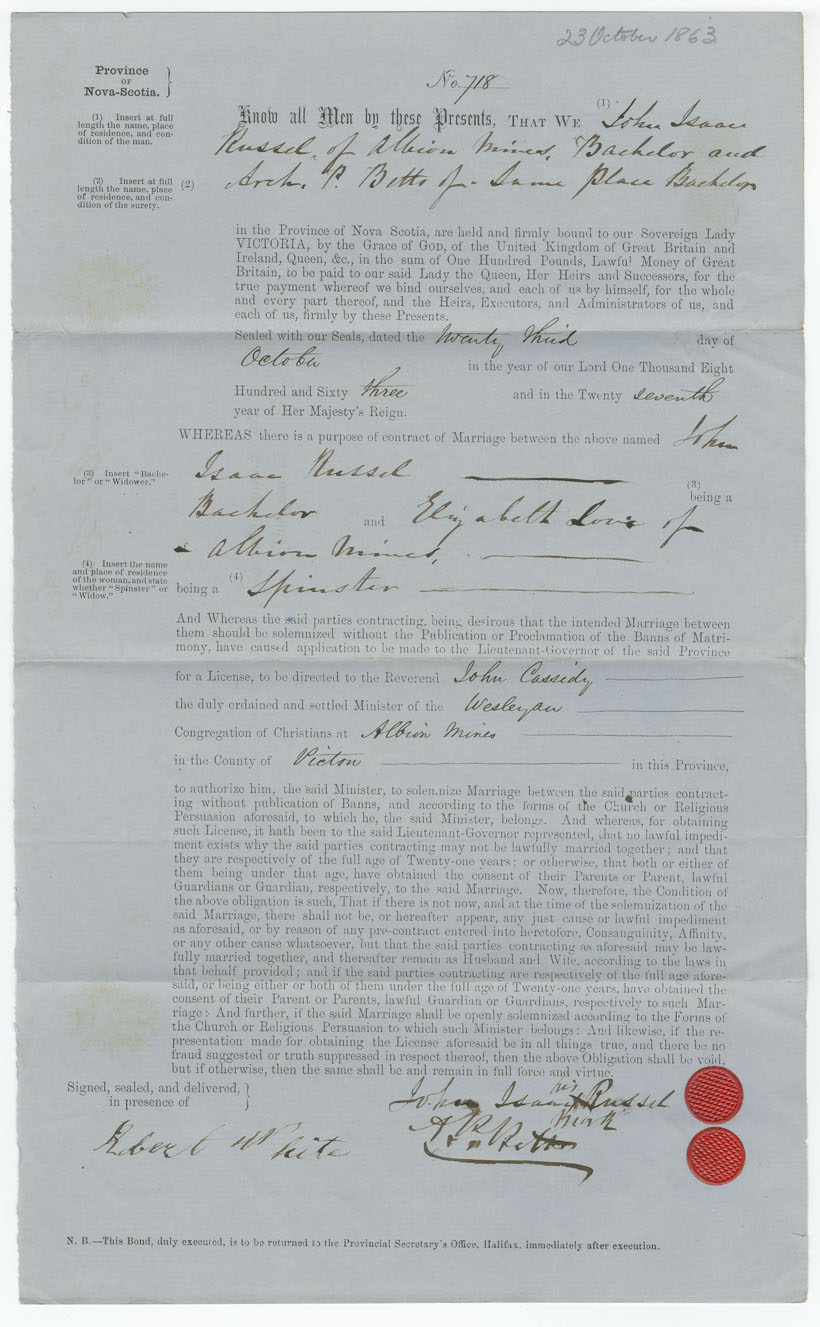 23 October 1863
Province
OF
Nova-Scotia.
No. 718
(1) Insert at full
length the name, place
of residence, and con-
dition of the man.
Know all Men by these Presents, THAT WE (1) John Isaac
Russel, of Albion Mines, Bachelor and
(2) Insert at full
length the name, place
of residence, and con-
dition of the surety.
(2) Arch. P. Betts of Same place Bachelor
in the Province of Nova Scotia, are held and firmly bound to our Sovereign Lady
VICTORIA, by the Grace of GOD, of the United Kingdom of Great Britain and
Ireland, Queen, &c., in the sum of One Hundred Pounds, Lawful Money of Great
Britain, to be paid to our said Lady the Queen, Her Heirs and Successors, for the
true payment whereof we bind ourselves, and each of us by himself, for the whole
and every part thereof, and the Heirs, Executors, and Administrators of us, and
each of us, firmly by these Presents.
Sealed with our Seals, dated the twenty third day of
October in the year of our Lord One Thousand Eight
Hundred and Sixty three and in the Twenty seventh
year of Her Majesty's Reign.
WHEREAS there is a purpose of contract of Marriage between the above named John
(3) Insert "Bache-
lor" or "Widower."
Isaac Russel (3) being a
Bachelor and Elizabeth Love of
Albion Mines,
(4) Insert the name
and place of residence
of the woman, and state
whether "Spinster" or
"Widow."
being a (4) Spinster
And Whereas the said parties contracting, being desirous that the intended Marriage between
them should be solemnized without the Publication or Proclamation of the Banns of Matri-
mony, have caused application to be made to the Lieutenant-Governor of the said Province
for a License, to be directed to the Reverend John Cassidy
the duly ordained and settled Minister of the Wesleyan
Congregation of Christians at Albion Mines
in the County of Pictou in this Province,
to authorize him, the said Minister, to solemnize Marriage between the said parties contract-
ing without publication of Banns, and according to the forms of the Church or Religious
Persuasion aforesaid, to which he, the said Minister, belongs. And whereas, for obtaining
such License, it hath been to the said Lieutenant-Governor represented, that no lawful impedi-
ment exists why the said parties contracting may not be lawfully married together; and that
they are respectively of the full age of Twenty-one years; or otherwise, that both or either of
them being under that age, have obtained the consent of their Parents or Parent, lawful
Guardians or Guardian, respectively, to the said Marriage. Now, therefore, the Condition of
the above obligation is such, That if there is not now, and at the time of the solemnization of the
said Marriage, there shall not be, or hereafter appear, any just cause or lawful impediment
as aforesaid, or by reason of any pre-contract entered into heretofore, Consanguinity, Affinity,
or any other cause whatsoever, but that the said parties contracting as aforesaid may be law-
fully married together, and thereafter remain as Husband and Wife, according to the laws in
that behalf provided; and if the said parties contracting are respectively of the full age afore-
said, or being either or both of them under the full age of Twenty-one years, have obtained the
consent of their Parent or Parents, lawful Guardian or Guardians, respectively to such Mar-
riage: And further, if the said Marriage shall be openly solemnized according to the Forms of
the Church or Religious Persuasion to which such Minister belongs: And likewise, if the re-
presentation made for obtaining the License aforesaid be in all things true, and there be no
fraud suggested or truth suppressed in respect thereof, then the above Obligation shall be void,
but if otherwise, then the same shall be and remain in full force and virtue.
Signed, sealed, and delivered,
in presence of
his
John Isaac X Russel
mark
A P Betts
Robert White
N. B.—This Bond, duly executed, is to be returned to the Provincial Secretary's Office, Halifax, immediately after execution.